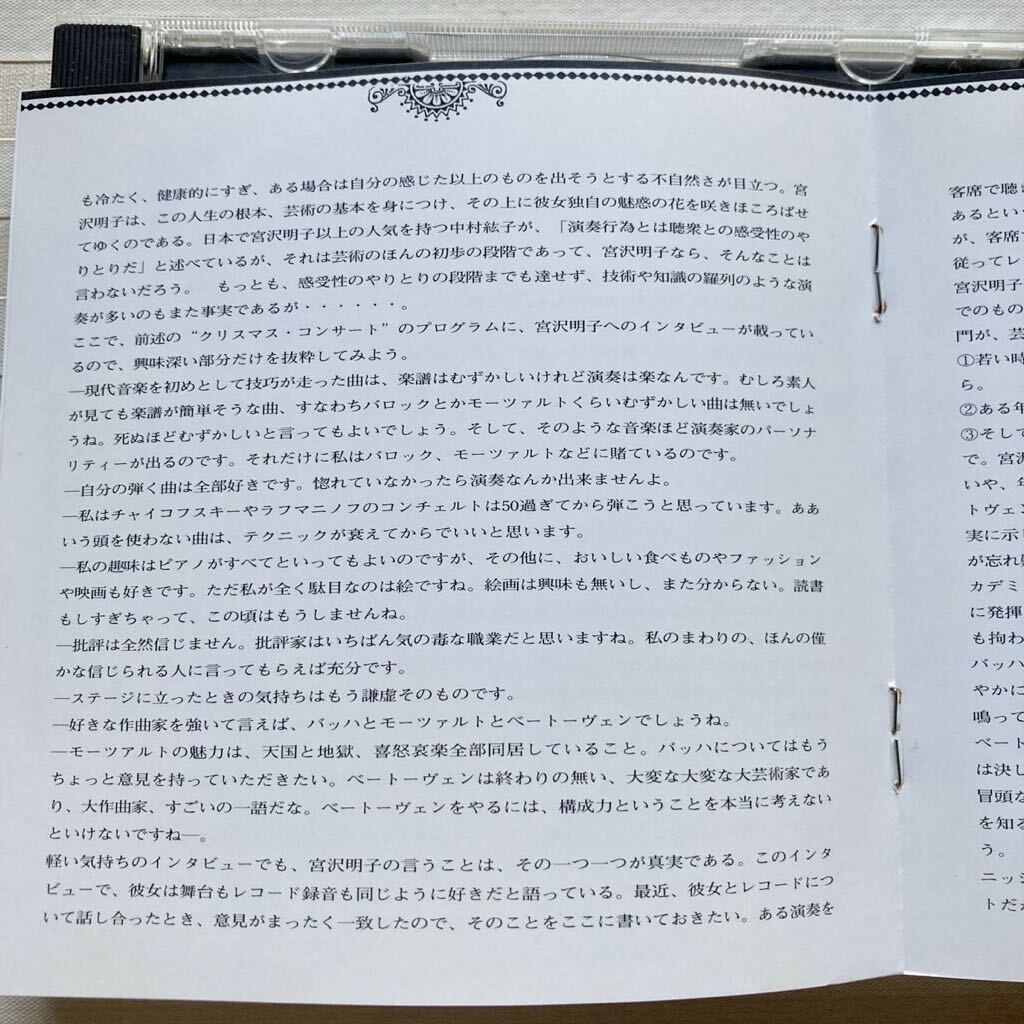 も冷たく、健康的にすぎ、ある場合は自分の感じた以上のものを出そうとする不自然さが目立つ。宮
沢明子は、この人生の根本、芸術の基本を身につけ、その上に彼女独自の魅惑の花を咲きほころばせ
てゆくのである。日本で宮沢明子以上の人気を持つ中村紘子が、「演奏行為とは聴衆との感受性のや
りとりだ」と述べているが、それは芸術のほんの初歩の段階であって、宮沢明子なら、そんなことは
言わないだろう。　もっとも、感受性のやりとりの段階までも達せず、技術や知識の羅列のような演
奏が多いのもまた事実であるが・・・・・・。
ここで、前述の“クリスマス・コンサート”のプログラムに、宮沢明子へのインタビューが載ってい
るので、興味深い部分だけを抜粋してみよう。
―現代音楽を初めとして技巧が走った曲は、楽譜はむずかしいけれど演奏は楽なんです。むしろ素人
が見ても楽譜が簡単そうな曲、すなわちバロックとかモーツァルトくらいむずかしい曲は無いでしょ
うね。死ぬほどむずかしいと言ってもよいでしょう。そして、そのような音楽ほど演奏家のパーソナ
リティーが出るのです。それだけに私はバロック、モーツァルトなどに賭ているのです。
―自分の弾く曲は全部好きです。惚れていなかったら演奏なんか出来ませんよ。
―私はチャイコフスキーやラフマニノフのコンチェルトは50過ぎてから弾こうと思っています。ああ
いう頭を使わない曲は、テクニックが衰えてからでいいと思います。
―私の趣味はピアノがすべてといってもよいのですが、その他に、おいしい食べものやファッション
や映画も好きです。ただ私が全く駄目なのは絵ですね。絵画は興味も無いし、また分からない。読書
もしすぎちゃって、この頃はもうしませんね。
―批評は全然信じません。批評家はいちばん気の毒な職業だと思いますね。私のまわりの、ほんの僅
かな信じられる人に言ってもらえば充分です。
―ステージに立ったときの気持ちはもう謙虚そのものです。
―好きな作曲家を強いて言えば、バッハとモーツァルトとベートーヴェンでしょうね。
―モーツアルトの魅力は、天国と地獄、喜怒哀楽全部同居していること。バッハについてはもう
ちょっと意見を持っていただきたい。ベートーヴェンは終わりの無い、大変な大変な大芸術家であ
り、大作曲家、すごいの一語だな。ベートーヴェンをやるには、構成力ということを本当に考えない
といけないですね―。
軽い気持ちのインタビューでも、宮沢明子の言うことは、その一つ一つが真実である。このインタ
ビューで、彼女は舞台もレコード録音も同じように好きだと語っている。最近、彼女とレコードにつ
いて話し合ったとき、意見がまったく一致したので、そのことをここに書いておきたい。ある演奏を
客席で聴き
あるという
が、客席で
従ってレ
宮沢明子
でのもの
門が、芸
①若い時
ら。
②ある年
③そして
で。宮沢
いや、年
トヴェン
実に示し
が忘れ
カデミ
に発揮
も拘わ
バッハ
やかに
鳴って
ベート
は決し
冒頭な
を知る
う。
ニッシ
トだか